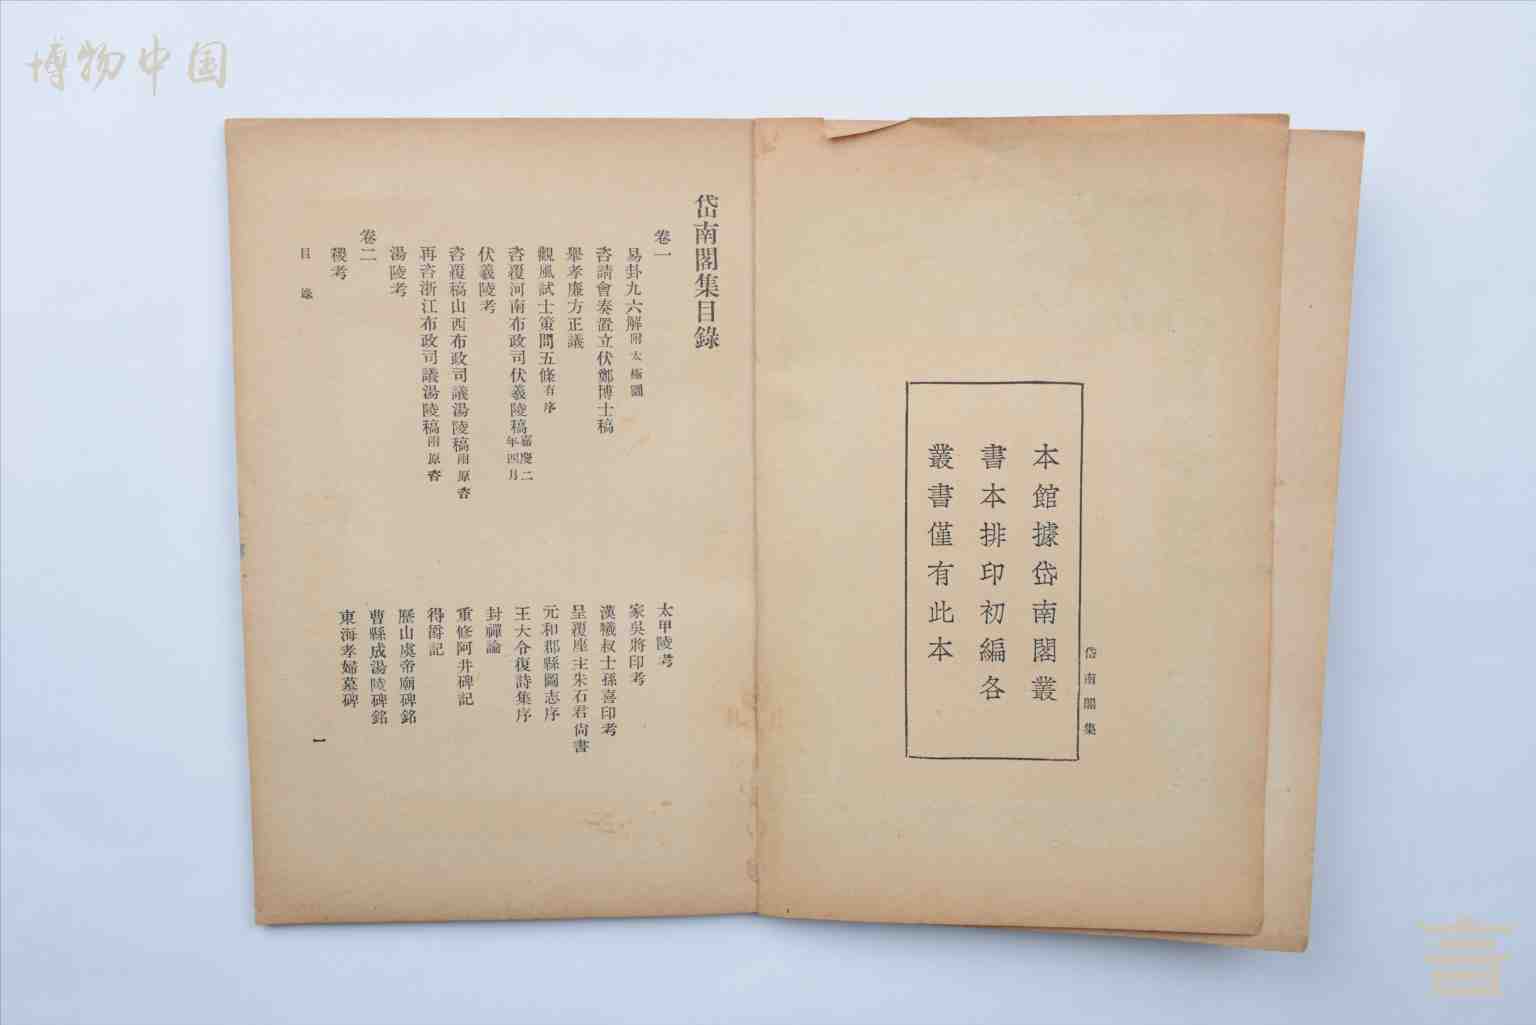 博物中国
本館據岱南閣叢
書本排印初編各
叢書僅有此本
岱南閣集
岱南閣集目錄
卷一
易卦九六解附太極圖
咨請會奏置立伏鄭博士稿
舉孝廉方正議
觀風試士策問五條有序
咨覆河南布政司伏羲陵稿嘉慶二年四月
伏羲陵考
咨覆稿山西布政司議湯陵稿附原咨
再咨浙江布政司議湯陵稿附原咨
湯陵考
卷二
稷考
太甲陵考
家吳將印考
漢犧叔士孫喜印考
呈覆座主朱石君尚書
元和郡縣圖志序
王大令復詩集序
封禪論
重修阿井碑記
得爵記
歷山虞帝廟碑銘
曹縣成湯陵碑銘
東海孝婦墓碑
目錄
一